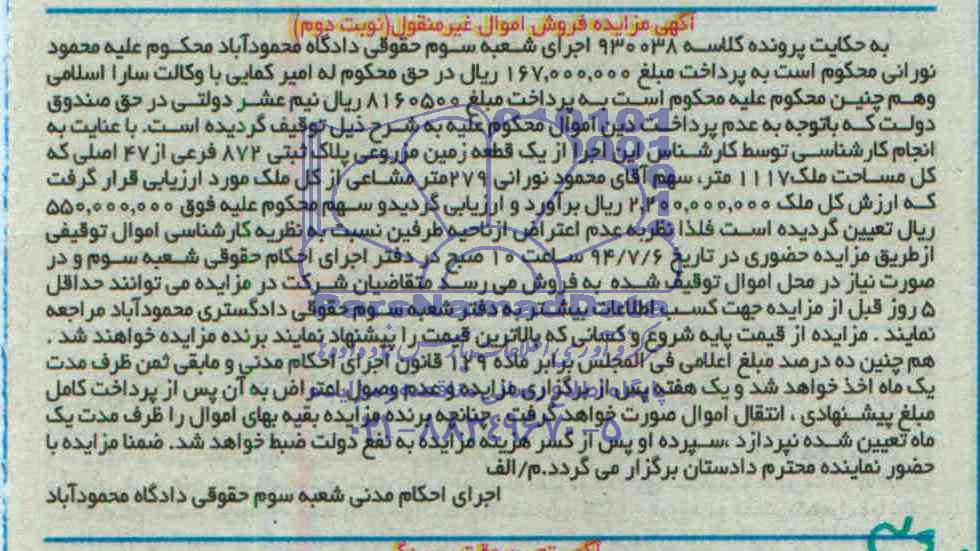 آگهی مزایده فروش اموال غیرمنقول(نوبت دوم)
به حکایت پرونده کلاسه ۹۳۰۰۳۸ اجرای شعبه سوم حقوقی دادگاه محمودآباد محکوم علیه محمود
نورانی محکوم است به پرداخت مبلغ ۱۶۷,۰۰۰,۰۰۰ ریال در حق محکوم له امیر کمایی با وکالت سارا اسلامی
وهم چنین محکوم علیه محکوم است به پرداخت مبلغ ۸۱۶۰۵۰۰ ریال نیم عشر دولتی در حق صندوق
دولت که باتوجه به عدم پرداخت دین اموال محکوم علیه به شرح ذیل توقیف گردیده است. با عنایت به
انجام کارشناسی توسط کارشناس این اجرا از یک قطعه زمین مزروعی پلاک ثبتی ۸۷۲ فرعی از ۴۷ اصلی که
کل مساحت ملک ۱۱۱۷ متر، سهم آقای محمود نورانی ۲۷۹متر مشاعی از کل ملک مورد ارزیابی قرار گرفت
که ارزش کل ملک ۲,۲۰۰,۰۰۰,۰۰۰ ریال برآورد و ارزیابی گردیدو سهم محکوم علیه فوق ۵۵۰,۰۰۰,۰۰۰
ریال تعیین گردیده است فلذا نظربه عدم اعتراض ازناحیه طرفین نسبت به نظریه کارشناسی اموال توقیفی
ازطریق مزایده حضوری در تاریخ ۹۴/۷/۶ ساعت ۱۰ صبح در دفتر اجرای احکام حقوقی شعبه سوم و در
صورت نیاز در محل اموال توقیف شده به فروش می رسد متقاضیان شرکت در مزایده می توانند حداقل
۵ روز قبل از مزایده جهت کسب اطلاعات بیشتر به دفتر شعبه سوم حقوقی دادگستری محمودآباد مراجعه
نمایند . مزایده از قیمت پایه شروع و کسانی که بالاترین قیمت را پیشنهاد نمایند برنده مزایده خواهند شد .
هم چنین ده درصد مبلغ اعلامی فی المجلس برابر ماده ۱۲۹ قانون اجرای احکام مدنی و مابقی ثمن ظرف مدت
یک ماه اخذ خواهد شد و یک هفته پس از برگزاری مزایده و عدم وصول اعتراض به آن پس از پرداخت کامل
مبلغ پیشنهادی ، انتقال اموال صورت خواهد گرفت . چنانچه برنده مزایده بقیه بهای اموال را ظرف مدت یک
ماه تعیین شده نپردازد ،سپرده او پس از کسر هزینه مزایده به نفع دولت ضبط خواهد شد. ضمنا مزایده با
حضور نماینده محترم دادستان برگزار می گردد.م/الف
اجرای احکام مدنی شعبه سوم حقوقی دادگاه محمودآباد
ParsNamadData
۰۲۱-۸۸۳۴۹۶۷۰-۵